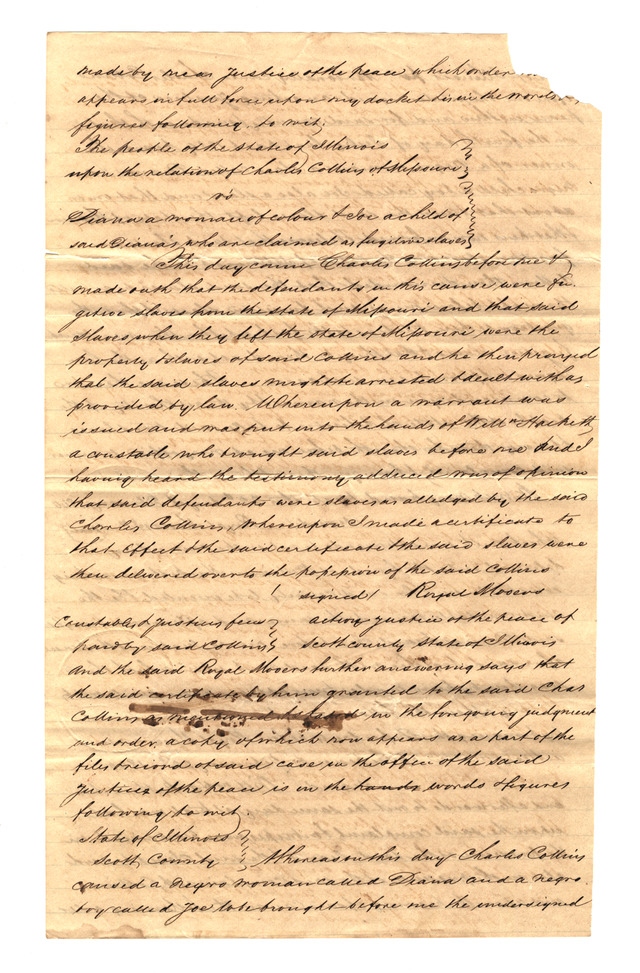 made by me as Justice of the peace which order
appears in full force upon my docket & is in the words &
figures following, to wit;
The people of the state of Illinois
upon the relation of Charles Collins of Missouri
vs
Diana a woman of colour & Joe a child of
said Diana's, who are claimed as fugitive slaves
This day came Charles Collins before me &
made oath that the defendants in this cause were fu-
gitive slaves from the state of Missouri and that said
slaves when they left the state of Missouri were the
property & slaves of said Collins and he then prayed
that the said slaves might be arrested & dealt with as
provided by law. Whereupon a warrant was
issued and was put into the hands of Will<sup>m</sup> Hackett
a constable who brought said slaves before me And I
having heard the testimony adduced was of opinion
that said defendants were slaves as alledged by the said
Charles Collins, Whereupon I made a certificate to
that effect & the said certificate & the said slaves were
then delivered over to the possession of the said Collins
(signed) Royal Mooers
Constables & Justices fees acting Justice of the peace of
paid by said Collins Scott county State of Illinois
And the said Royal Mooers further answering says that
the said certificate by him granted to the said Chas
Collins as mentioned in the foregoing judgment
and order, a copy of which now appears as a part of the
files & record of said case in the office of the said
Justice of the peace is in the hands words & figures
following to wit;
State of Illinois
Scott County Whereas on this day Charles Collins
caused a negro woman called Diana and a negro
boy called Joe to be brought before me the undersigned